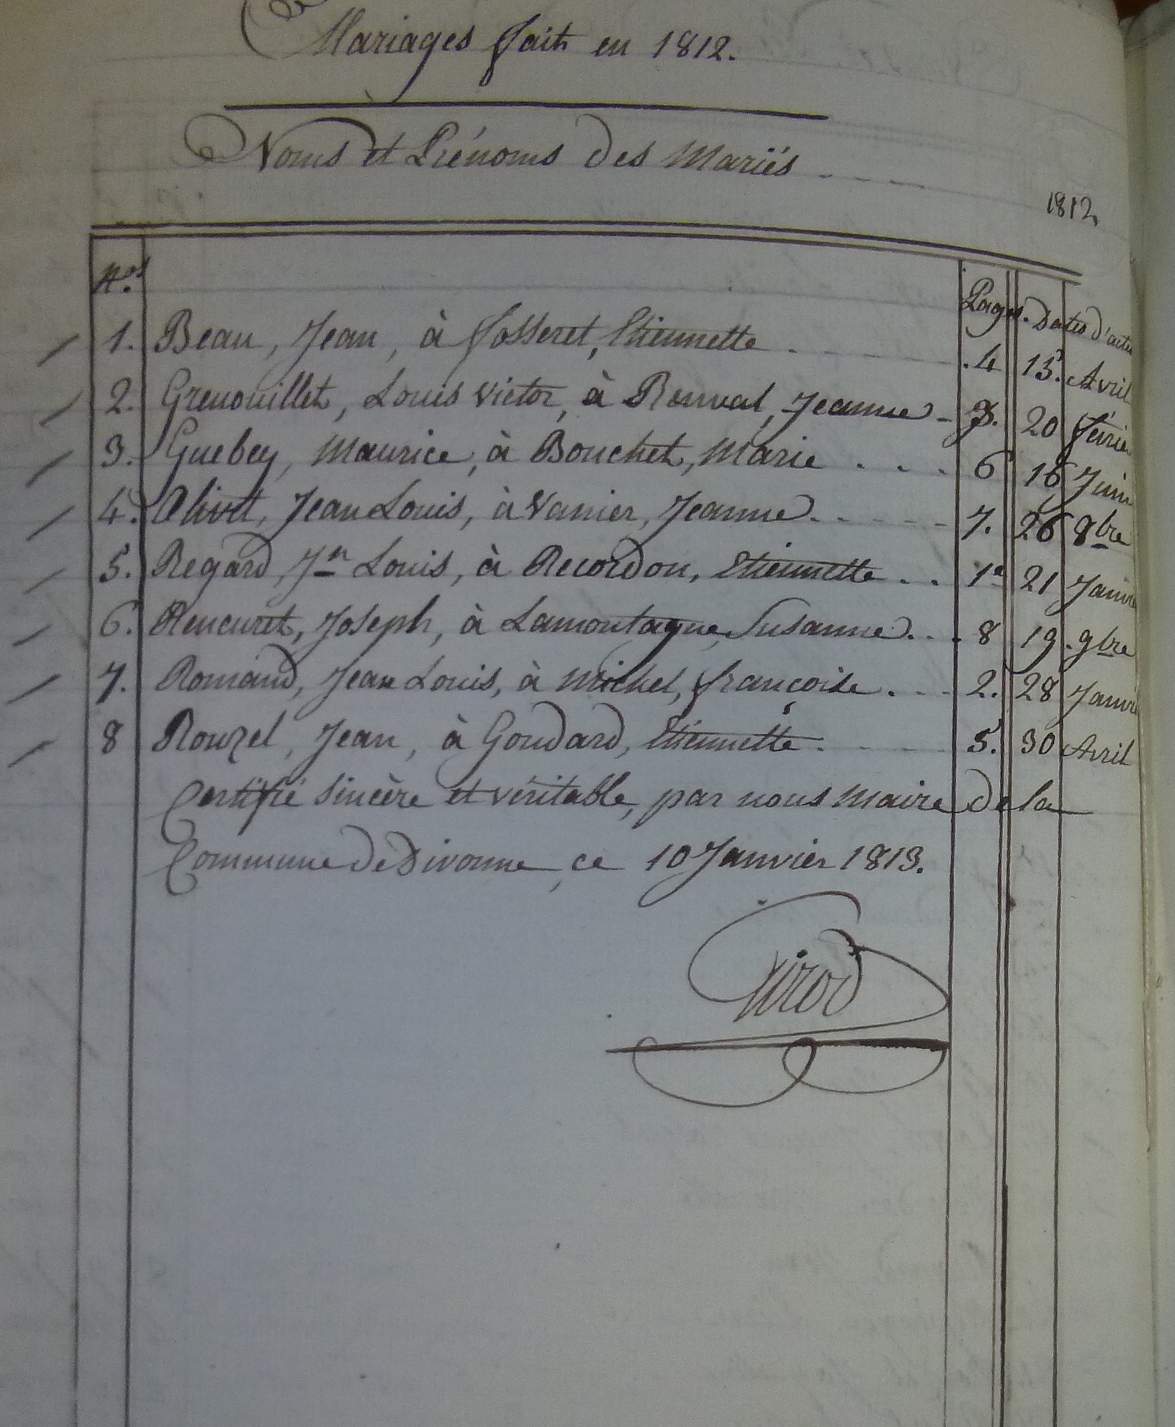 Mariages faits en 1812.
Noms et Prénoms des Mariés
1812.
Nos Pages. Dates d'actes
1. Beau, Jean, à Fosseret, Etiennette 4 15. Avril
2. Grenouillet, Louis Victor, à Bonval, Jeanne 3. 20 février
3. Guebey, Maurice, à Bouchet, Marie 6 16 Juin
4. Olivet, Jean Louis, à Vanier, Jeanne 7. 26 8bre
5. Regard, Jn Louis, à Recordon, Etiennette 1e 21 Janvier
6. Rencuret, Joseph, à Lamontagne, Susanne 8 19. 9bre
7. Romand, Jean Louis, à Michel, françoise 2. 28 Janvier
8 Rouzel, Jean, à Goudard, Etiennette 5. 30 Avril
Certifié sincère et véritable, par nous Maire de la
Commune de Divonne, ce 10 Janvier 1813.
Girod